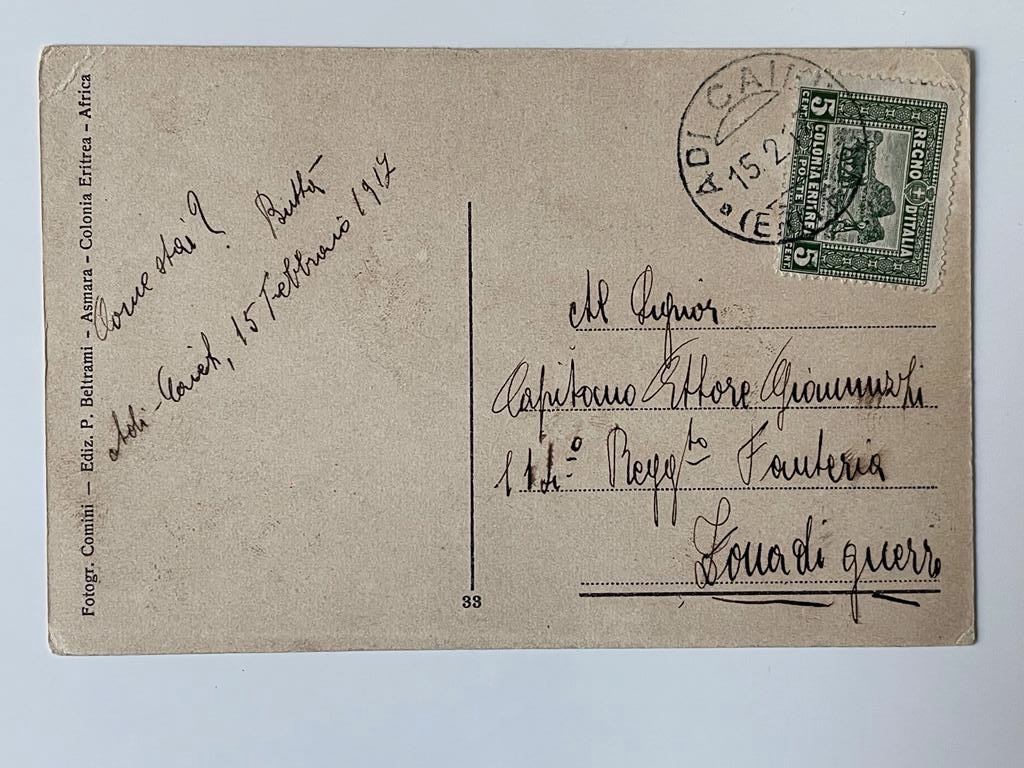 Fotogr. Comini — Ediz. P. Beltrami - Asmara - Colonia Eritrea - Africa
Come stai?
Adi-Caieh, 15 Febbraio 1917
33
ADI CAI
15.2
REGNO D'ITALIA
COLONIA ERITREA
POSTE
5 CENT.
5 CENT.
Al Signor
Capitano Ettore
Regg to Fanteria
Zona di guerra